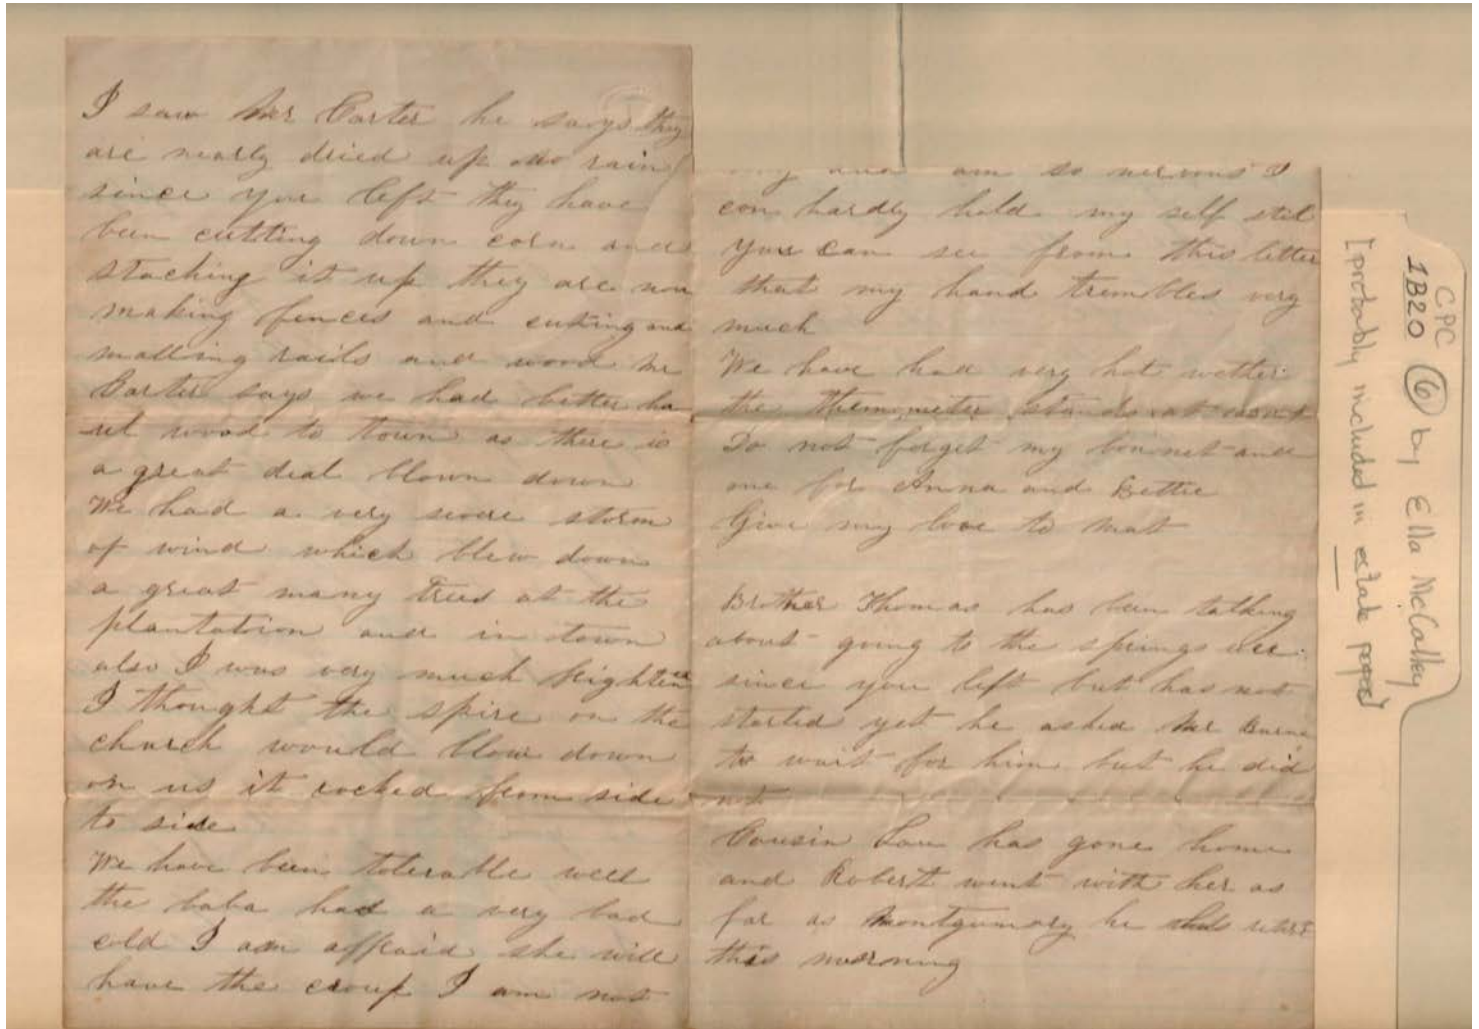 I saw Mr Carter he says they
are nearly dried up no rain
since you left they have
been cutting down corn and
stacking it up they are now
making fences and cuting and
malling rails and wood Mr
Carter says we had better ha
-ul wood to town as there is
a great deal blown down
We had a very severe storm
of wind which blew down
a great many trees at the
plantation and in town
also I was very much frightened
I thought the spire on the
church would blow down
on us it rocked from side
to side
We have been tolerable well
the baba had a very bad
cold I am affraid she will
have the croup I am not
and am so nervous I
con hardly hold my self stil
you can see from this letter
that my hand trembles very
much
We have had very hot wether
the themometer stands at
Do not forget my bonnet and
one for Anna and Bettie
Give my love to Mat
Brother Thomas has been talking
about going to the springs ever
since you left but has not
started yet he asked Mr
to wait for him but he did
not
Cousin Lou has gone home
and Robert went with her as
far as Montgumory he
this morning
CPC
1B20 (6) by Ella McCalley
[probably included in estate papers]